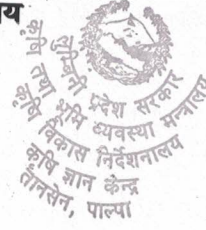 य
लुम्बिनी प्रदेश सरकार
कृषि तथा भूमि व्यवस्था मन्त्रालय
कृषि विकास निर्देशनालय
कृषि ज्ञान केन्द्र
तानसेन, पाल्पा